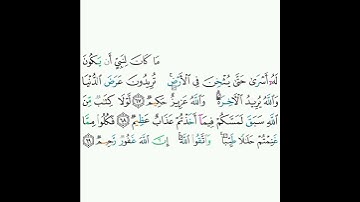 مَا كَانَ لِنَبِيٍّ أَن يَكُونَ
لَهُۥٓ أَسْرَىٰ حَتَّىٰ يُثْخِنَ فِى ٱلْأَرْضِ ۚ تُرِيدُونَ عَرَضَ ٱلدُّنْيَا
وَٱللَّهُ يُرِيدُ ٱلْـَٔاخِرَةَ ۗ وَٱللَّهُ عَزِيزٌ حَكِيمٌ ٦٧ لَّوْلَا كِتَـٰبٌ مِّنَ
ٱللَّهِ سَبَقَ لَمَسَّكُمْ فِيمَآ أَخَذْتُمْ عَذَابٌ عَظِيمٌ ٦٨ فَكُلُوا۟ مِمَّا
غَنِمْتُمْ حَلَـٰلًا طَيِّبًا ۚ وَٱتَّقُوا۟ ٱللَّهَ ۚ إِنَّ ٱللَّهَ غَفُورٌ رَّحِيمٌ ٦٩